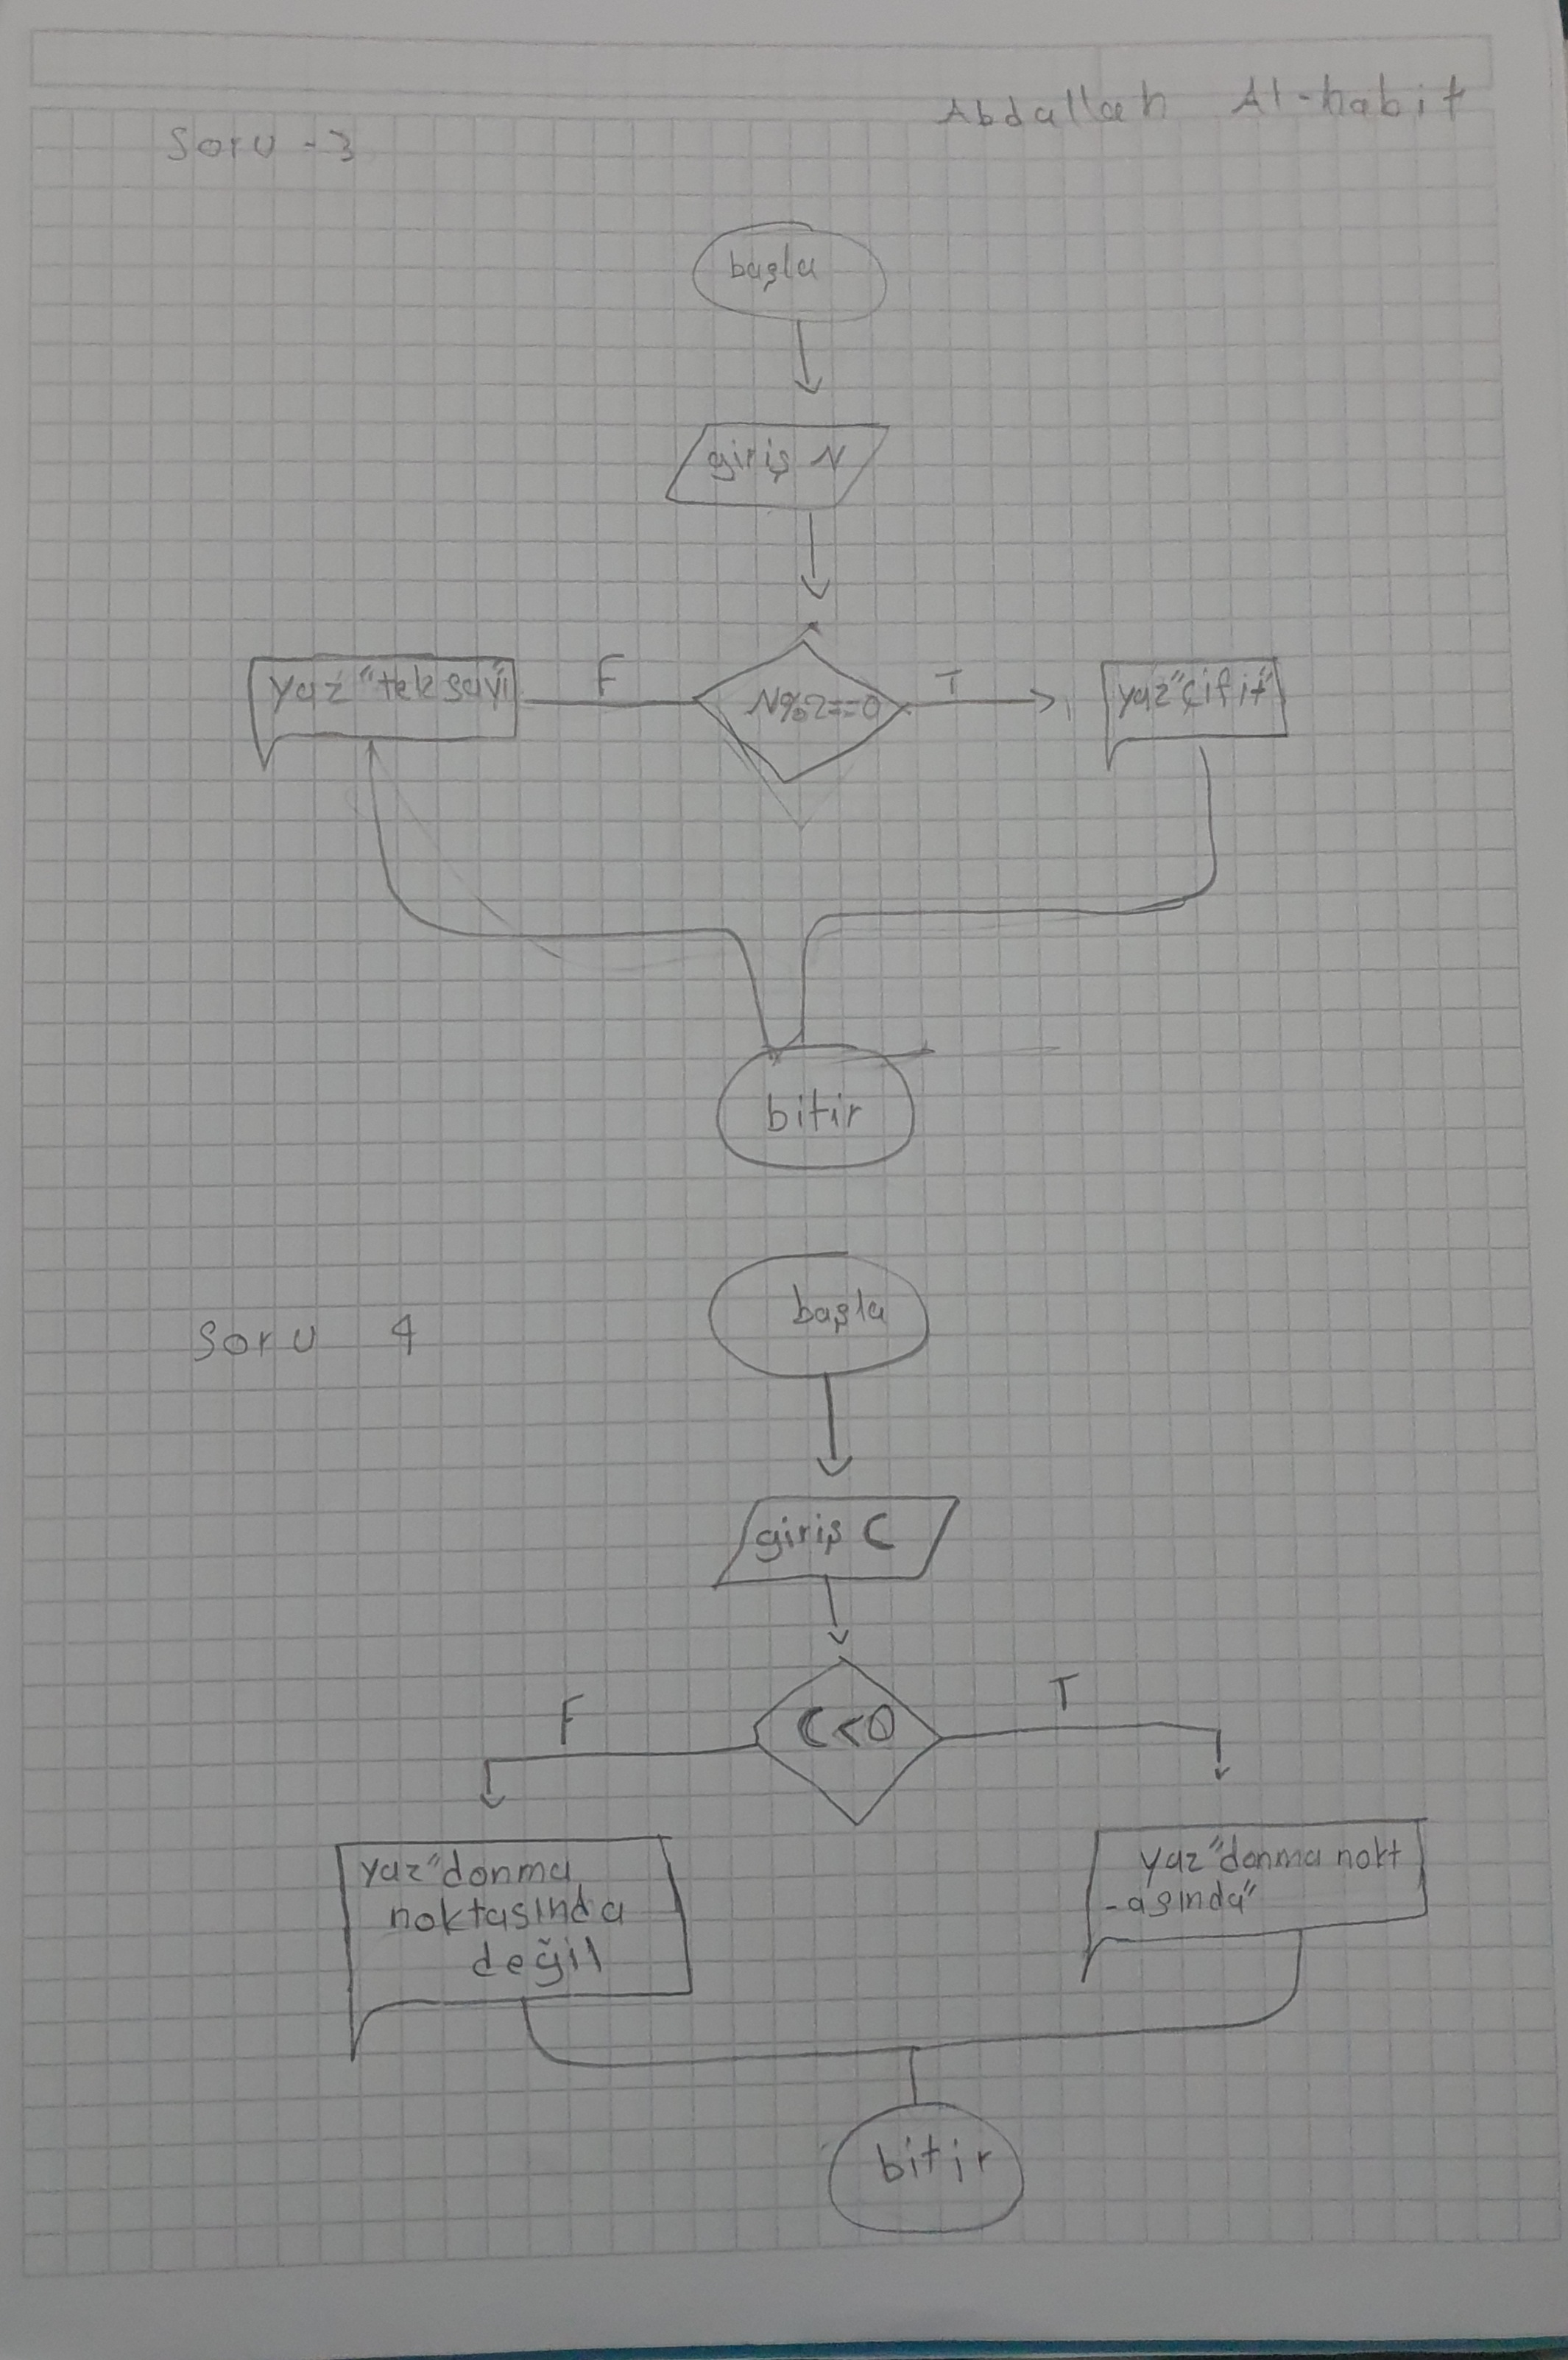 Abdallah Al-habit
Soru -3
başla
giriş N
yaz "tek sayı"
F
N%2==0
T
yaz "çifit"
bitir
Soru 4
başla
giriş C
F
C<0
T
yaz "donma
noktasında
değil
yaz "donma nokt
-asında"
bitir